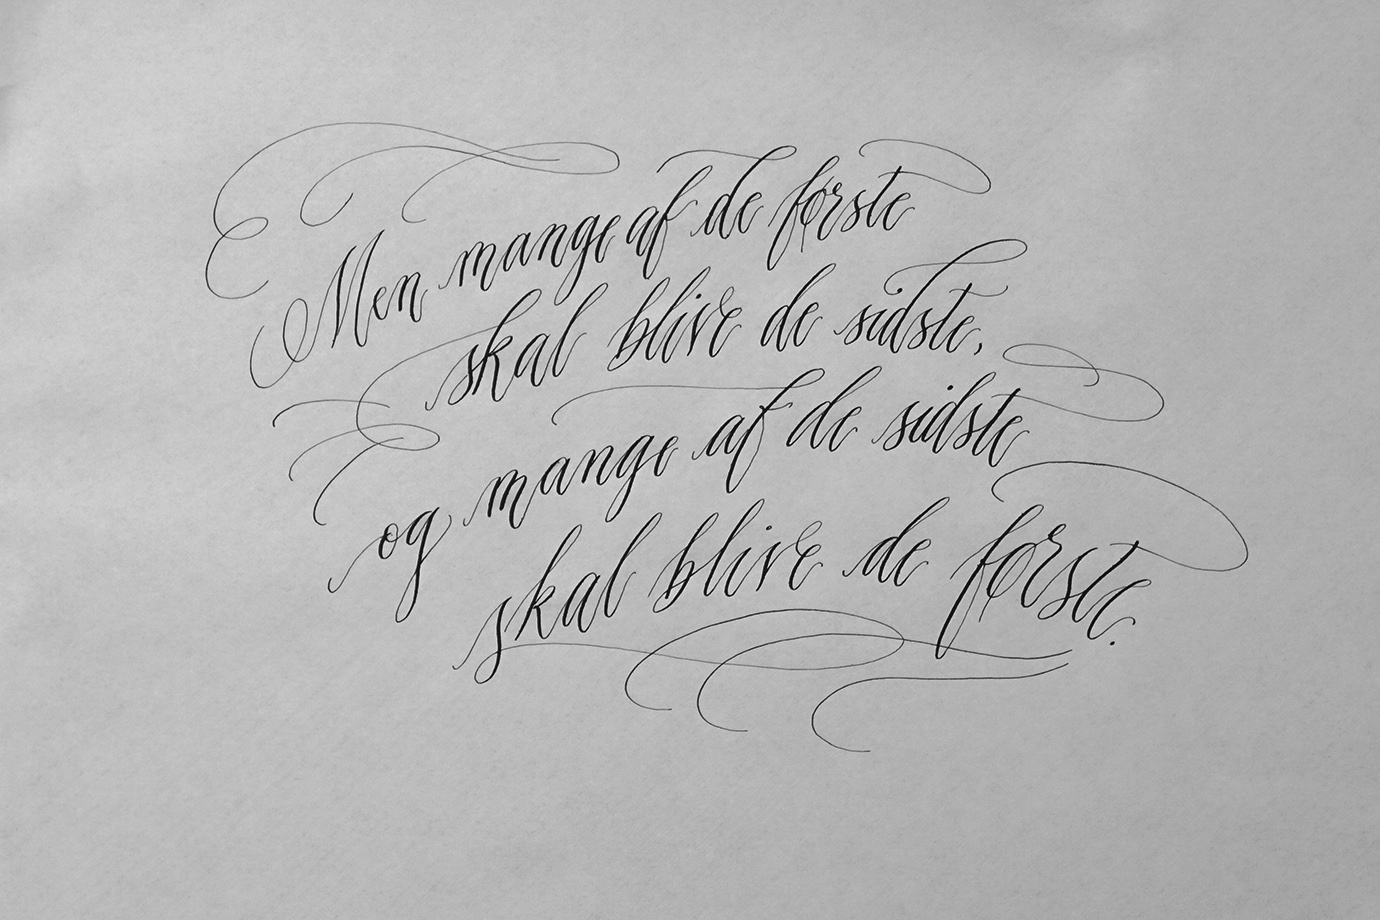 Men mange af de første
skal blive de sidste,
og mange af de sidste
skal blive de første.